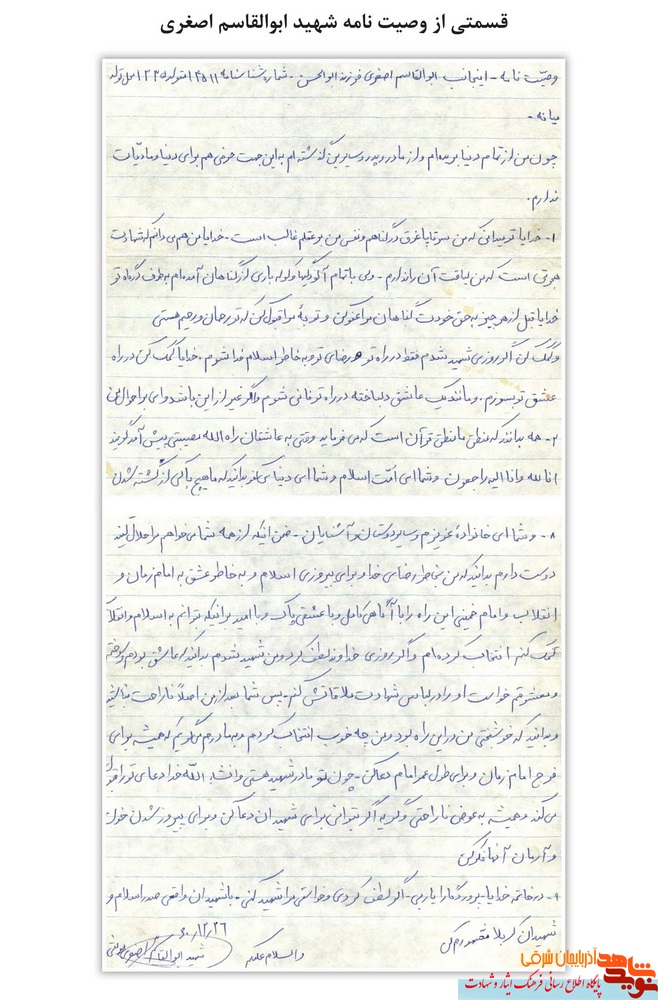 قسمتی از وصیت نامه شهید ابوالقاسم اصغری
وصیت نامه - اینجانب ابوالقاسم اصغری فرزند ابوالحسن - شماره شناسنامه متولد ۱۳۳۵ محل تولد
میانه -
چون من از تمام دنیا بریده‌ام و از مادر و پدر و سایرین گذشته‌ام به این جهت حرفی هم برای دنیا و مادیات
ندارم.
۱- خدایا تو میدانی که من سر تا پا غرق در گناهم و نفس من بر عقلم غالب است - خدایا من هم می‌دانم که شهادت
هجرتی است که من لیاقت آن را ندارم - ولی با تمام آلودگیها و کوله باری از گناهان آمده‌ام به طرف درگاه تو
خدایا قبل از هر چیز به حق خودت گناهان مرا عفو کن و توبهٔ مرا قبول کن که تو رحمان و رحیم هستی
و کمک کن اگر روزی شهید شدم فقط در راه تو و رضای تو و به خاطر اسلام فدا شوم. خدایا کمک کن در راه
عشق تو بسوزم. و مانند یک عاشق دلباخته در راه تو فانی شوم و اگر غیر از این باشد وای بر احوال من
۲- همه بدانند که منطق ما منطق قرآن است که می فرماید وقتی به عاشقان راه الله مصیبتی پیش آمد گویند
انا لله و انا الیه راجعون و شما ای امت اسلام و شما ای دنیا بدانید که ما هیچ باکی از کشته شدن
۸- و شما ای خانوادهٔ عزیزم و سایر دوستان و آشنایان - ضمن اینکه از همه شما می‌خواهم مرا حلال کنید
دوست دارم بدانید که من بخاطر رضای خدا و برای پیروزی اسلام و به خاطر عشق به امام زمان و
انقلاب و امام خمینی این راه را با آگاهی کامل و با عشقی پاک و با امید برانیکه توانم به اسلام و انقلاب
کمک کنم انتخاب کرده‌ام و اگر روزی خداوند لطف کرد و من شهید شدم بدانید که عاشق بودم و
و معشوقم خواست او را در لباس شهادت ملاقاتش کنم - پس شما بعد از من اصلاً ناراحت نباشید
و بدانید که خوشبختی من در این راه بود و من چه خوب انتخاب کردم و به مادرم میگویم که همیشه برای
فرج امام زمان و برای طول عمر امام دعا کن - چون تو مادر شهید هستی و انشاء الله خدا دعای تو را قبول
می کند و همیشه به عوض ناراحتی و گریه اگر بتوانی برای شهیدان دعا کن و برای پیروز شدن
و آرمان آنها فکر کن
۹- در خاتمه خدایا - پروردگارا یا ربی - اگر لطف کردی و خواستی مرا شهید کنی - با شهیدان واقعی صدر اسلام و
شهیدان کربلا محشورم کن
والسلام علیکم
۶۰/۱۲/۲۶
شهید ابوالقاسم اصغری
نوید شاهد آذربایجان شرقی
پایگاه اطلاع رسانی فرهنگ ایثار و شهادت